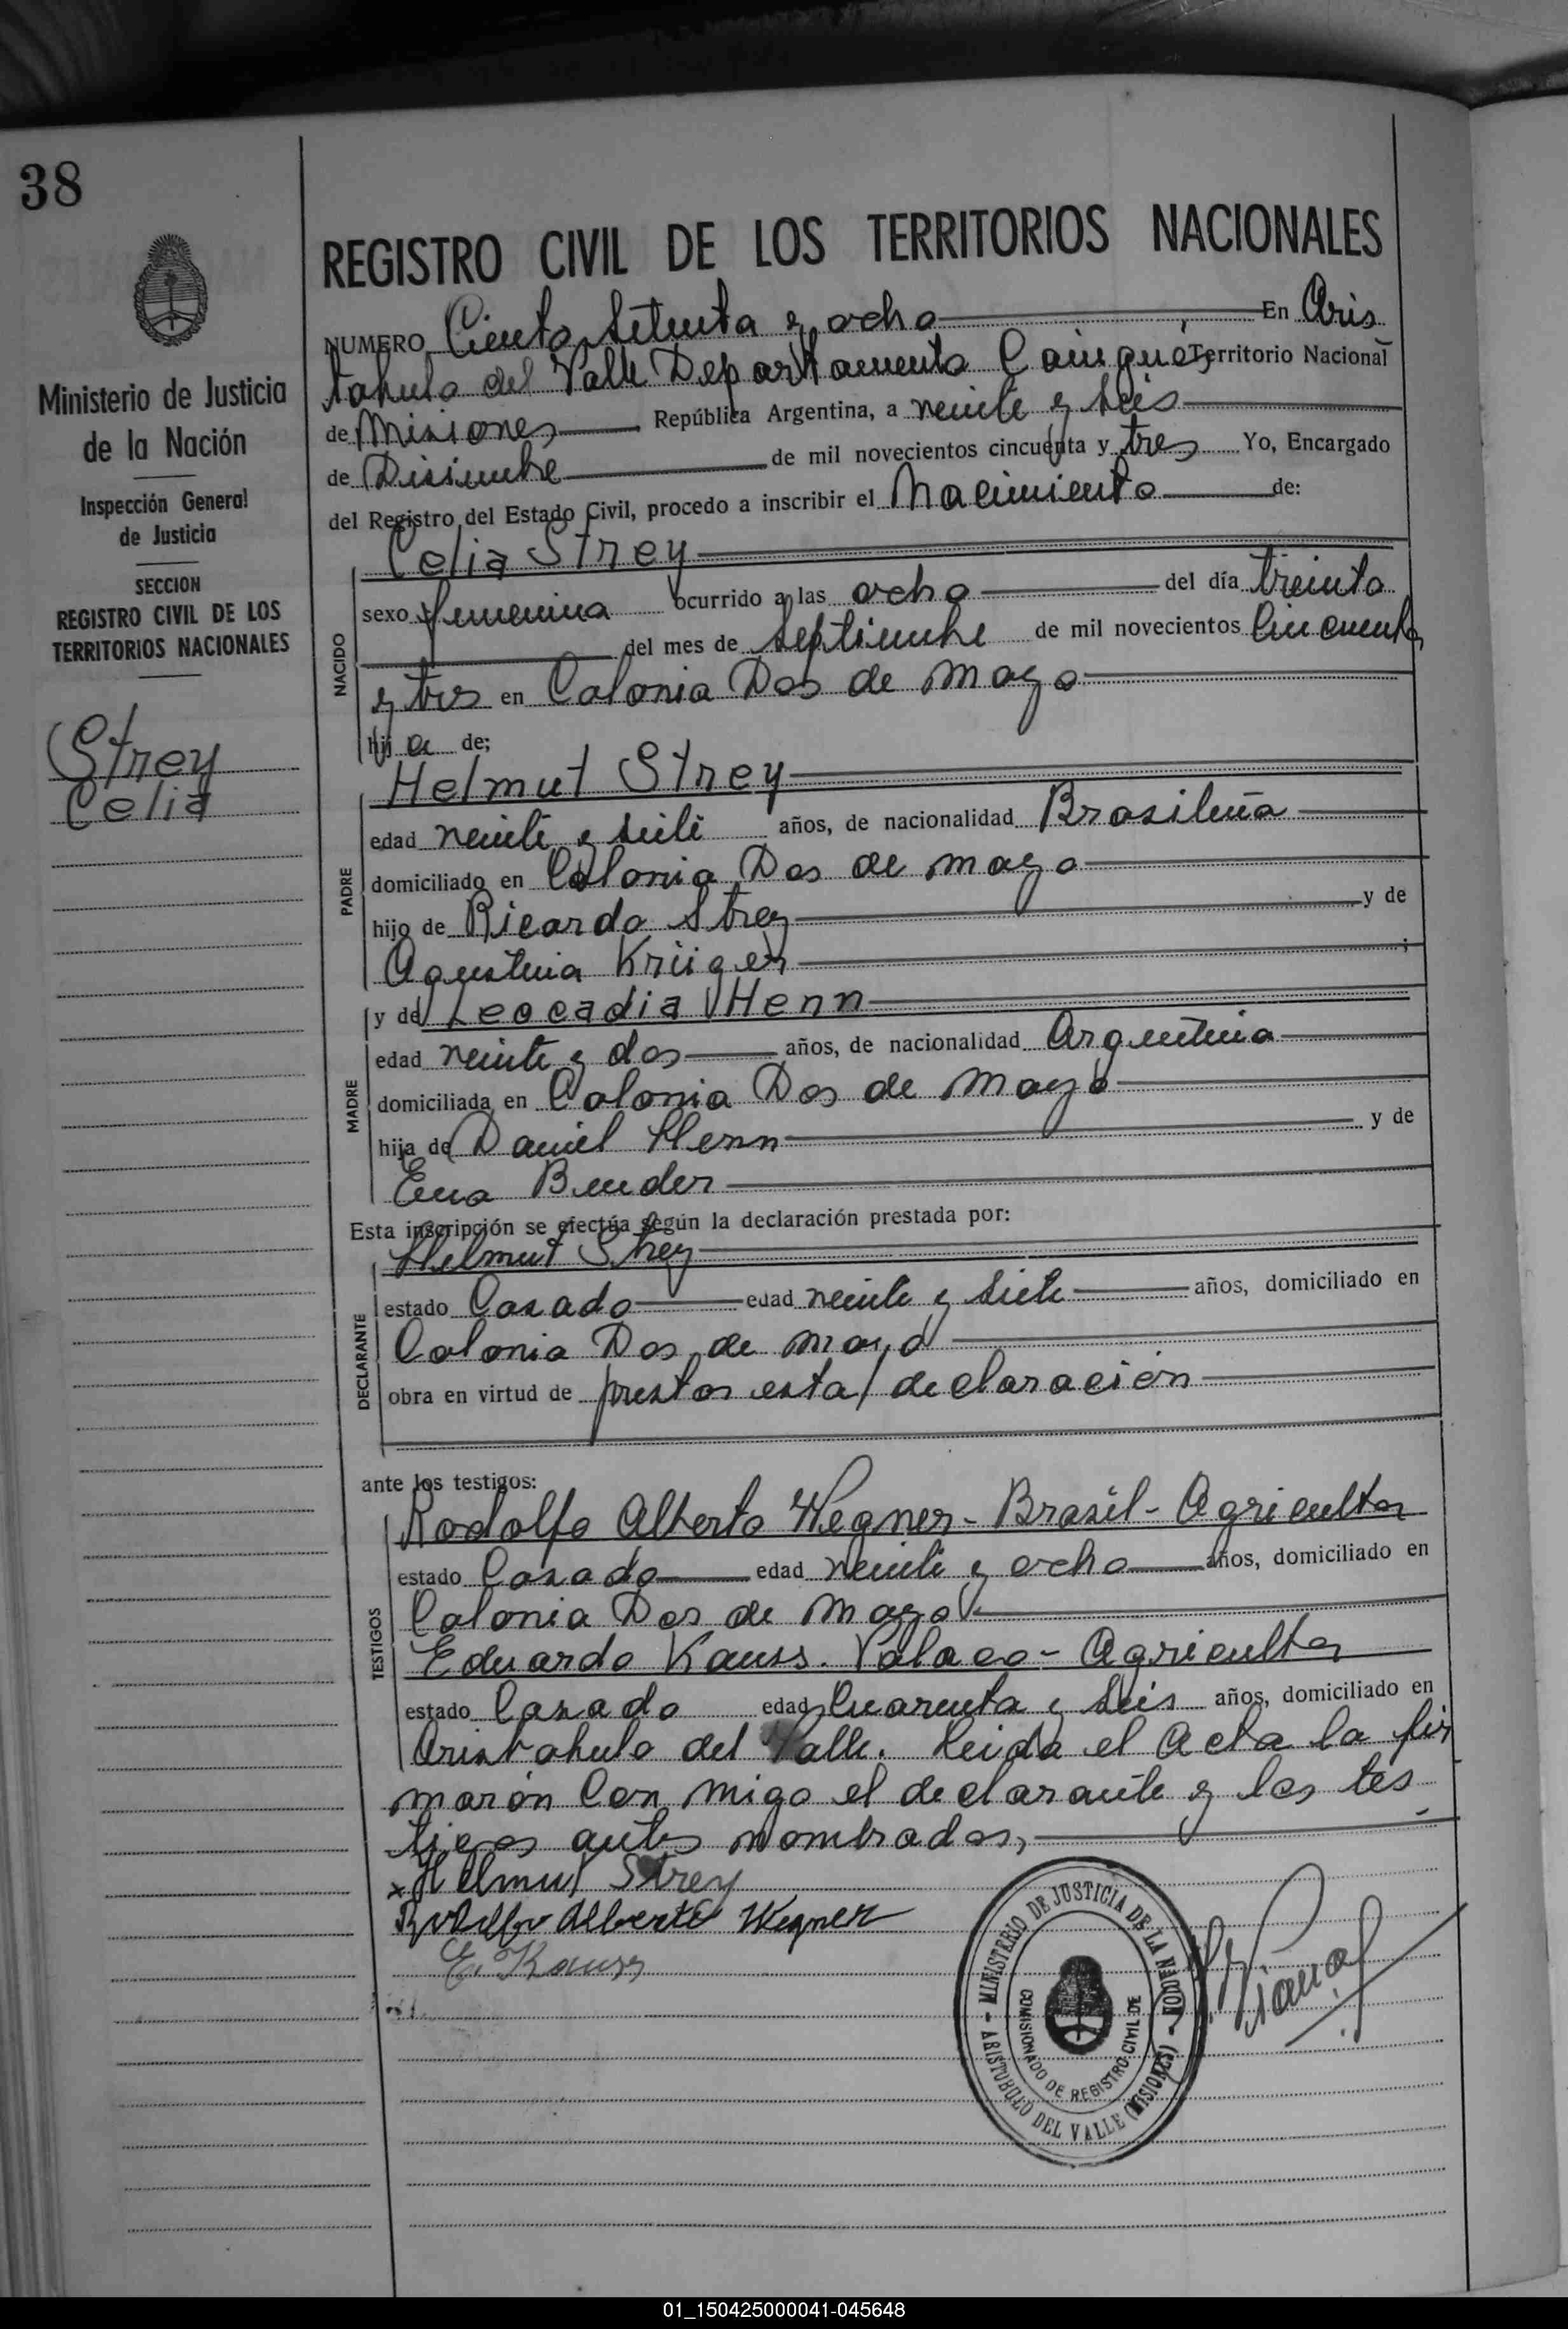 38
REGISTRO CIVIL DE LOS TERRITORIOS NACIONALES
Ministerio de Justicia
de la Nación
Inspección General
de Justicia
SECCION
REGISTRO CIVIL DE LOS
TERRITORIOS NACIONALES
Strey
Celia
NUMERO Ciento Setenta y ocho En Aris
tobulo del Valle Departamento Cainguás Territorio Nacional
de Misiones República Argentina, a veinte y seis
de Disiembre de mil novecientos cincuenta y tres Yo, Encargado
del Registro del Estado Civil, procedo a inscribir el Nacimiento de:
NACIDO
Celia Strey
sexo femenina ocurrido a las ocho del día treinta
del mes de Septiembre de mil novecientos Cincuenta
y tres en Colonia Dos de Mayo
hij a de;
PADRE
Helmut Strey
edad veinte y siete años, de nacionalidad Brasileña
domiciliado en Colonia Dos de Mayo
hijo de Ricardo Strey y de
Agustina Krüger ;
MADRE
y de Leocadia Henn
edad veinte y dos años, de nacionalidad Argentina
domiciliada en Colonia Dos de Mayo
hija de Daniel Henn y de
Ema Bender
Esta inscripción se efectúa según la declaración prestada por:
DECLARANTE
Helmut Strey
estado Casado edad veinte y siete años, domiciliado en
Colonia Dos de Mayo
obra en virtud de prestar esta declaración
ante los testigos:
TESTIGOS
Rodolfo Alberto Wegner - Brasil - Agricultor
estado Casado edad veinte y ocho años, domiciliado en
Colonia Dos de Mayo
Eduardo Kauss. Polaco - Agricultor
estado Casado edad Cuarenta y seis años, domiciliado en
Aristobulo del Valle. Leida el Acta la fir
marón Con migo el declarante y los tes
tigos antes nombrados,
x Helmut Strey
Rodolfo Alberto Wegner
E. Kauss
MINISTERIO DE JUSTICIA DE LA NACION - ARISTOBULO DEL VALLE (MISIONES) -
COMISIONADO DE REGISTRO CIVIL DE
01_150425000041-045648